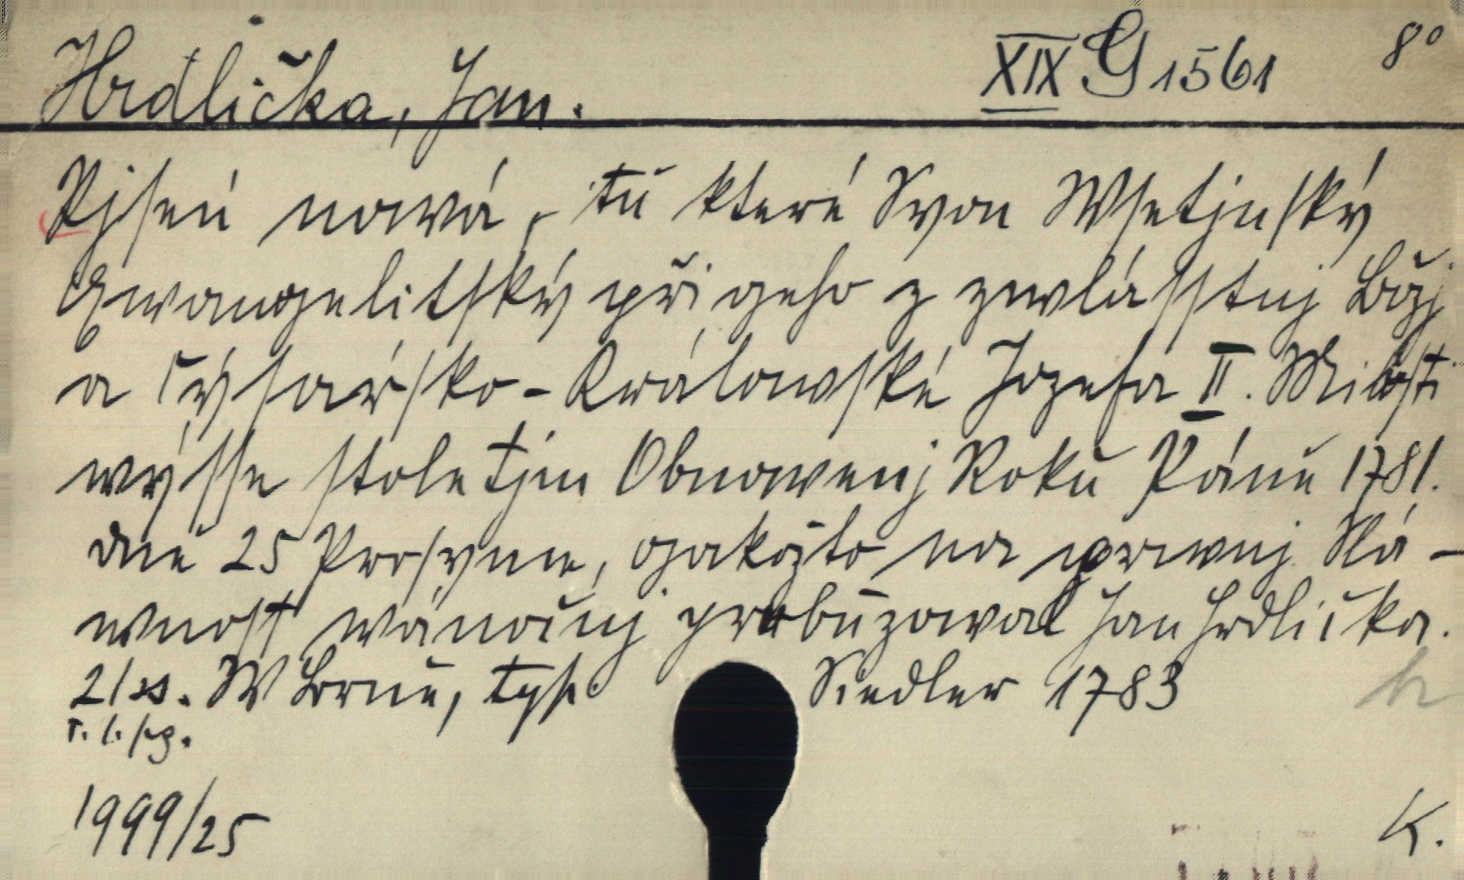 Hrdlička, Jan. XIX G 1561 8°
Pjseň nowá, tu které Syon Wsetjnský
Ewangelitský při geho z zwlásstnj Božj
a Cýsařsko-Králowské Jozefa II. Milosti
wýsse stoletjm Obnowenj Roku Pánu 1781.
dne 25 Prosynce, gakožto na prwnj Slá-
wnost wánočnj probuzowal Jan Hrdlička.
2 l ss. W Brně, typ. Siedler 1783 h
r. l. sg.
1999/25 K.